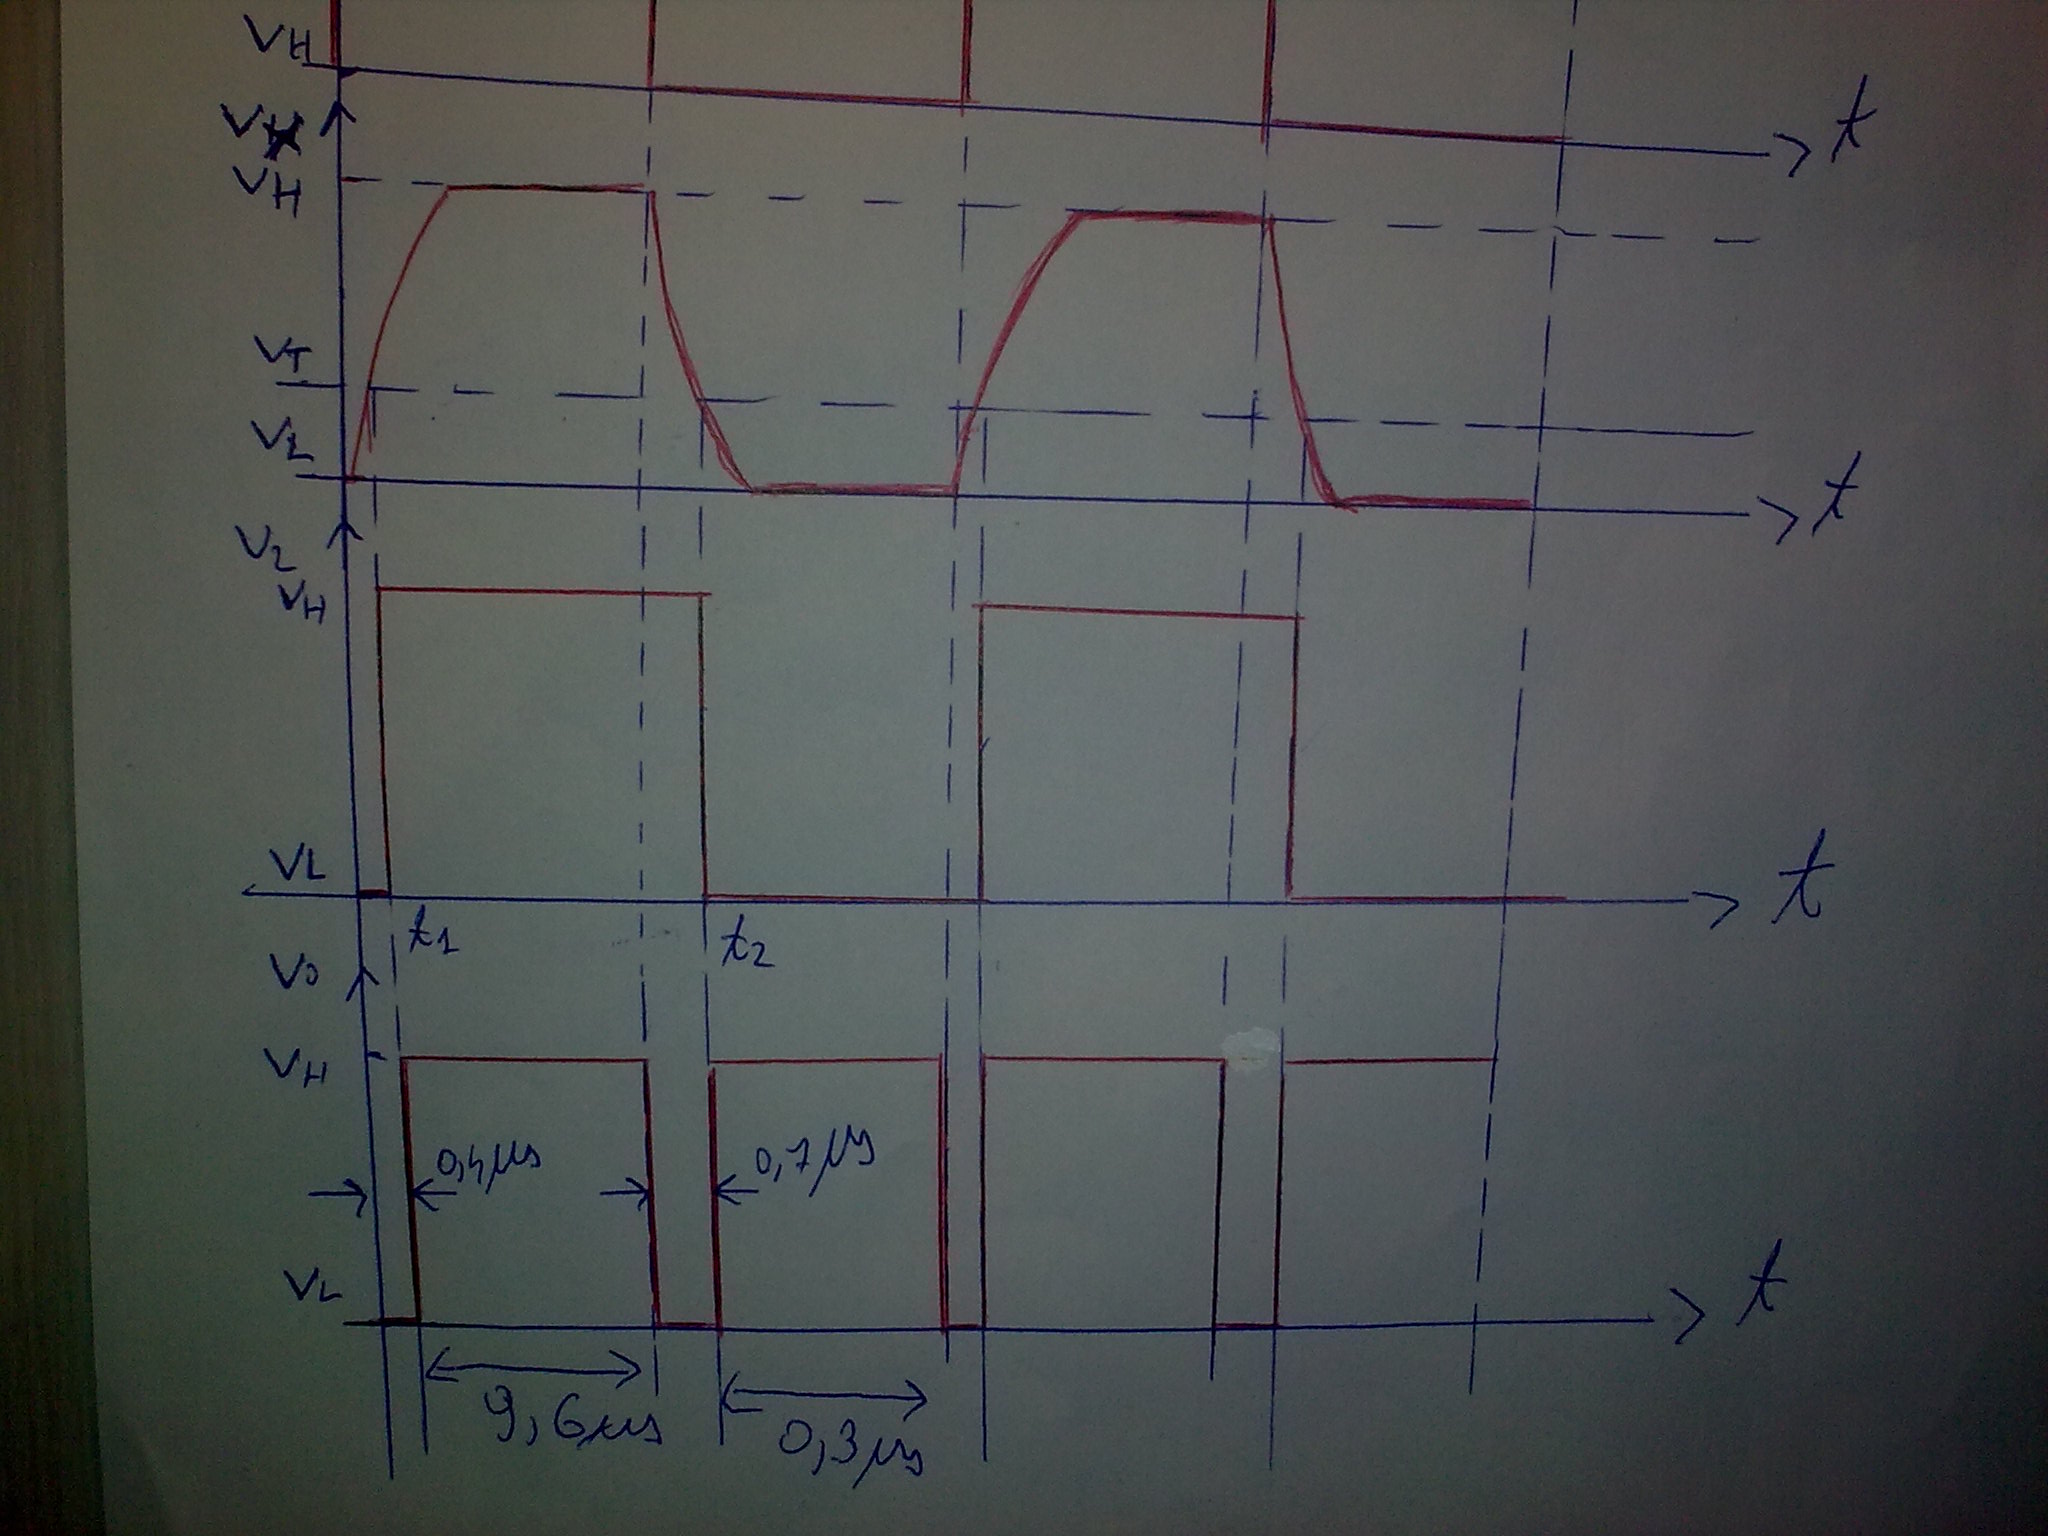 VH
t
VH
VT
VL
t
V2
VH
VL
t
t1
t2
VH
0,4µs
0,7µs
VL
t
9,6µs
0,3µs